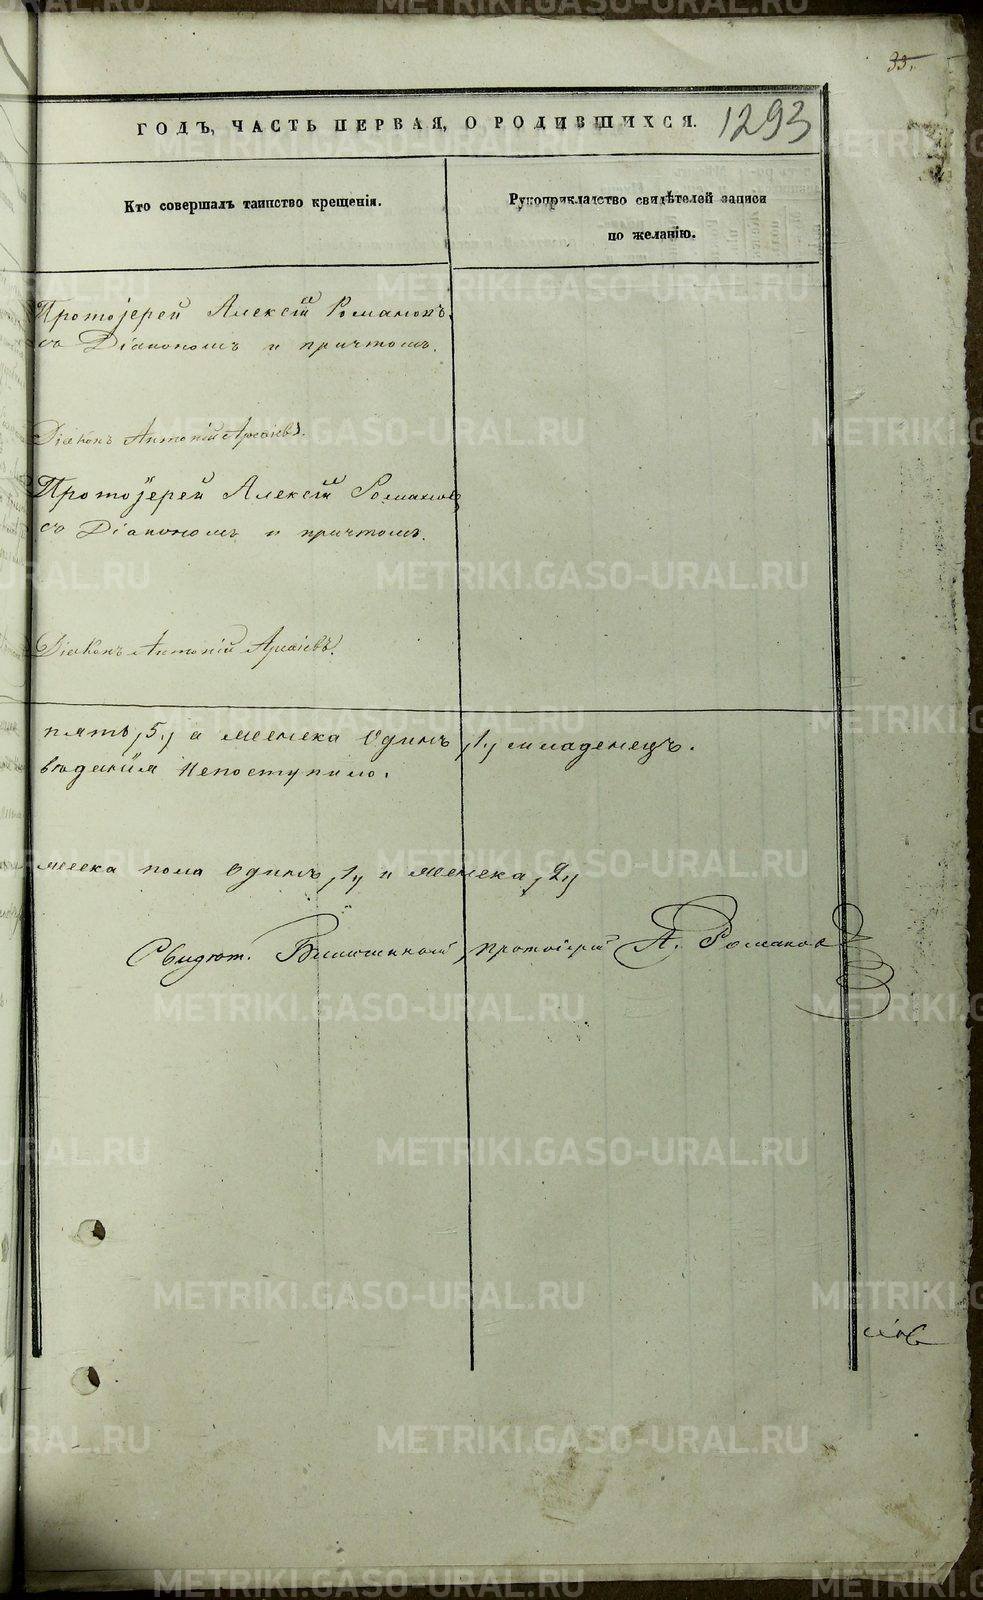 33.
ГОДЪ, ЧАСТЬ ПЕРВАЯ, О РОДИВШИХСЯ. 1293
Кто совершалъ таинство крещенія.
Рукоприкладство свидѣтелей записи
по желанію.
Протоіерей Алексій Романовъ.
съ Діакономъ и причтомъ.
Діаконъ Антоній
Протоіерей Алексій Романовъ
съ Діакономъ и причтомъ.
Діаконъ Антоній
пять, 5, а женска одинъ, 1, младенецъ.
непоступило.
пола одинъ, 1, и женска, 2,
протоіерей А. Романовъ
METRIKI.GASO-URAL.RU